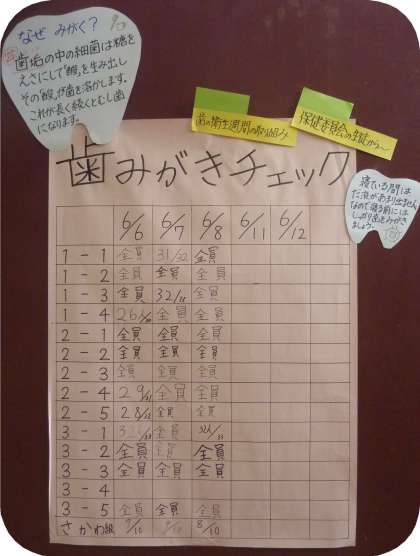 なぜ みがく？
歯垢の中の細菌は糖を
えさにして「酸」を生み出し
その「酸」が歯を溶かします。
これが長く続くとむし歯
になります。
歯の衛生週間の取り組み
保健委員会の生徒から～
歯みがきチェック
寝ている間は
だ液があまり出ません
なので寝る前には
しっかり歯をみがき
ましょう。
6/6 6/7 6/8 6/11 6/12
1-1 全員 31/32 全員
1-2 全員 全員 全員
1-3 全員 32/ 全員
1-4 26/ 全員 全員
2-1 全員 全員 全員
2-2 全員 全員 全員
2-3 全員 全員 全員
2-4 29/ 全員 全員
2-5 28/ 全員 全員
3-1
3-2 全員 全員 全員
3-3 全員 全員 全員
3-4
3-5 全員 全員 全員
さかわ組 9/10 8/10